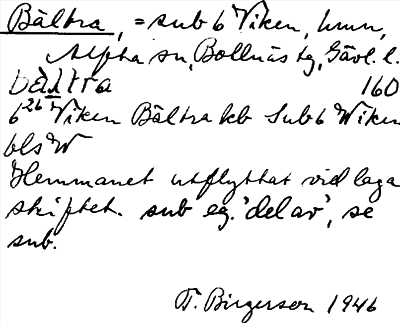 Bältra, = sub 6 Viken, hmn,
Alfta sn, Bollnäs tg, Gävl. l.
bältra 160
6 26 I Viken Bältra kb Sub 6 Wiken
bls W
Hemmanet utflyttat vid laga
skiftet. sub eg. 'del av', se
sub.
F. Birgerson 1946